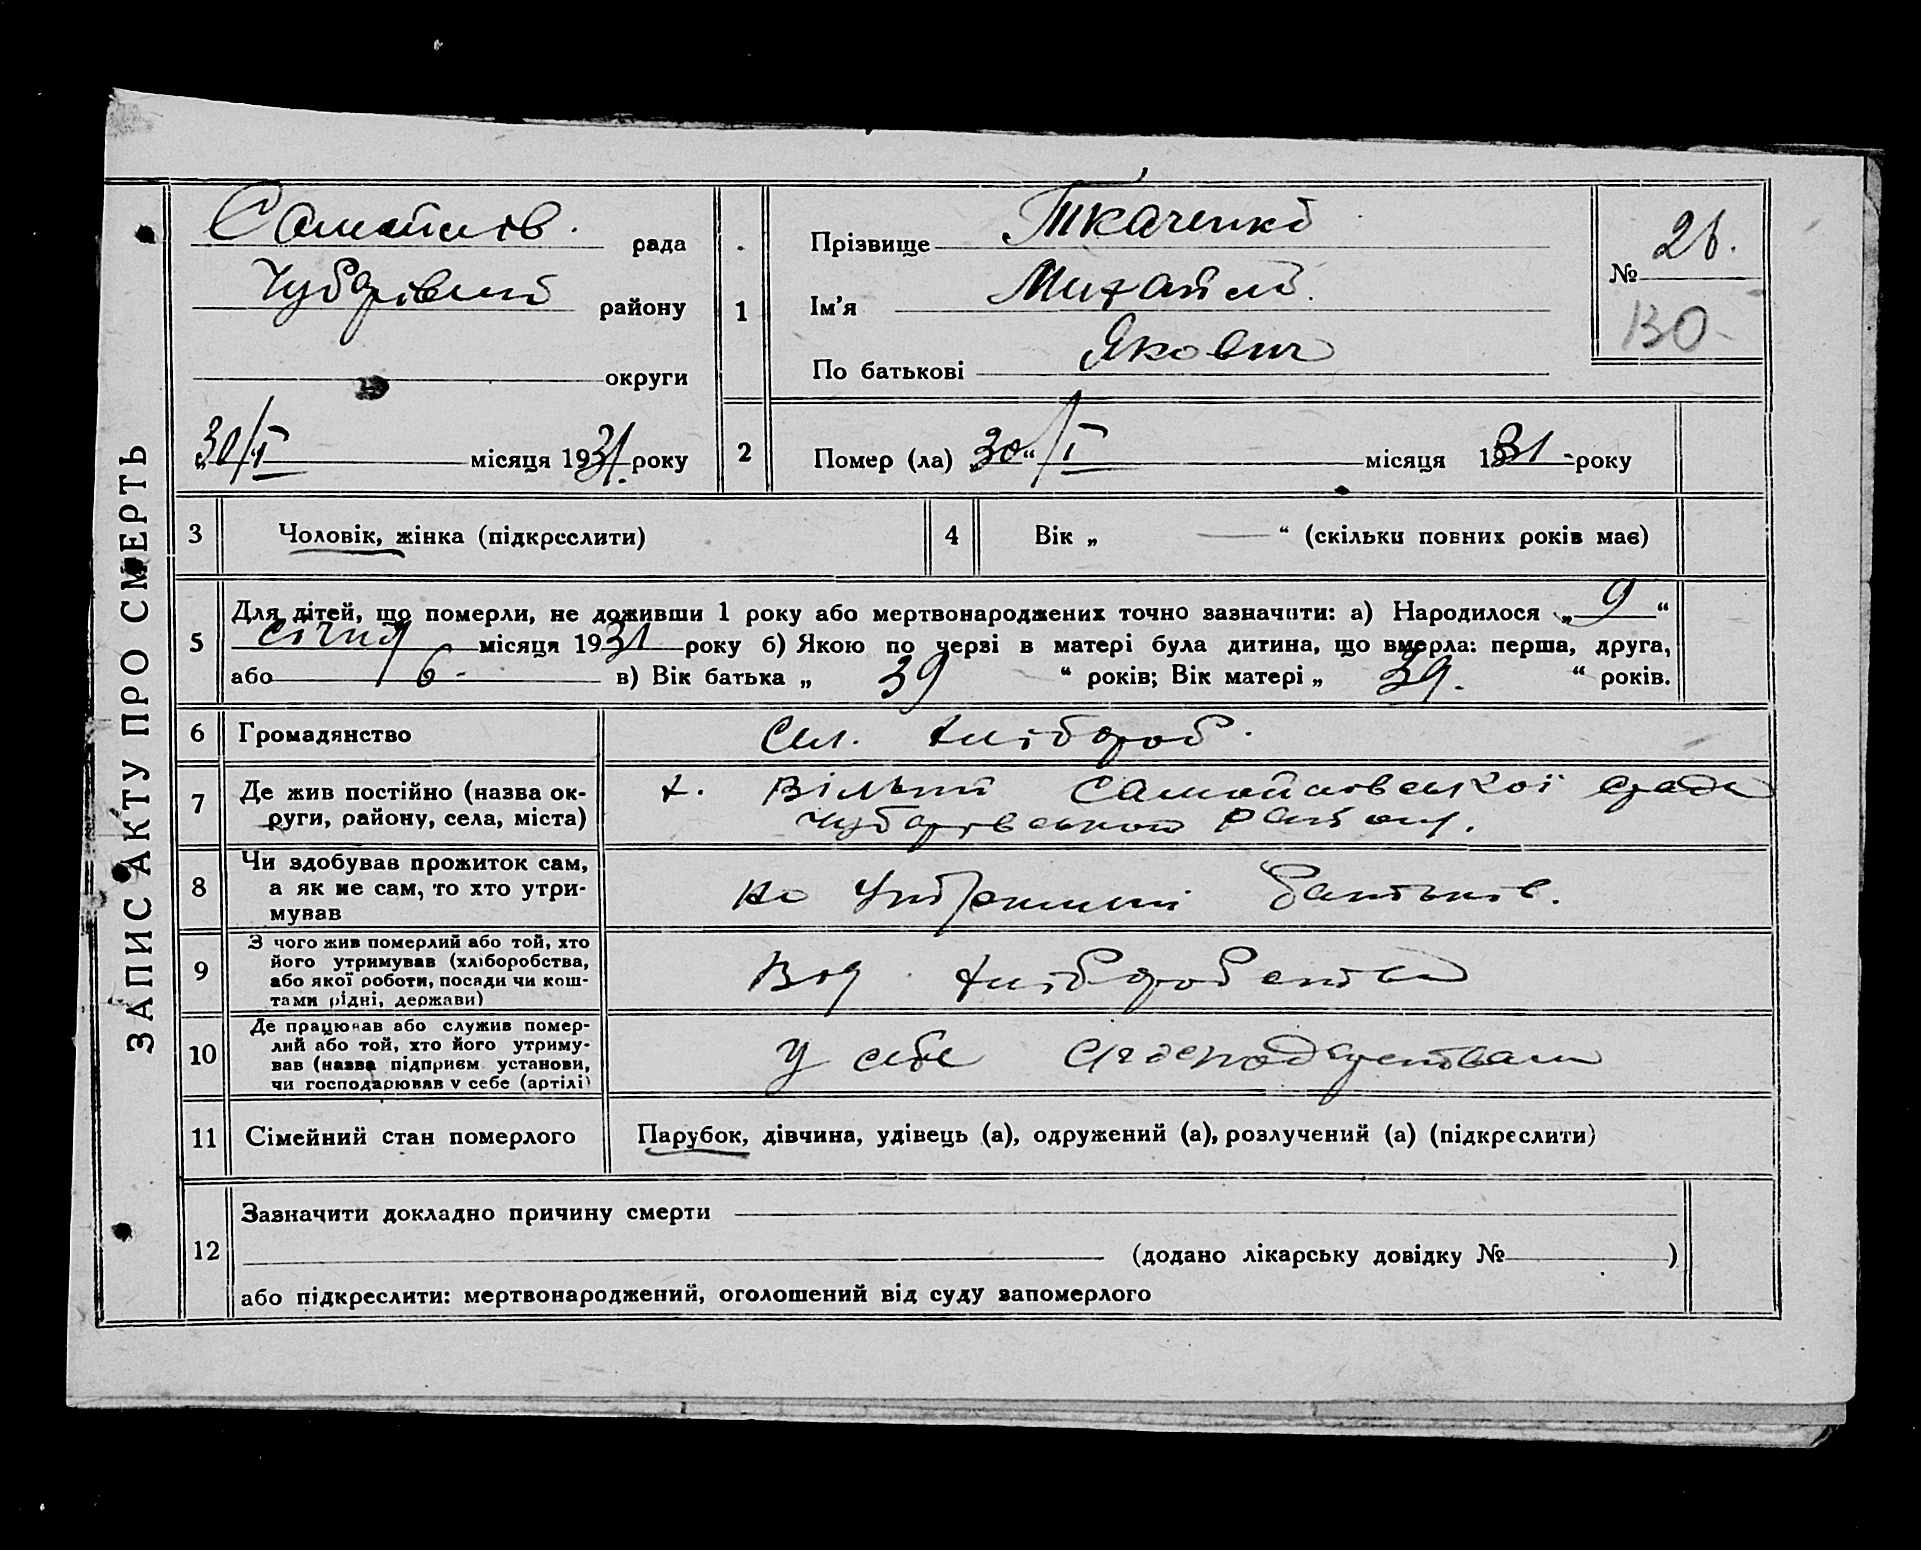 ЗАПИС АКТУ ПРО СМЕРТЬ
Самойлів. рада
Чубарівський району
округи
„30/I місяця 1931. року
1
Прізвище Ткаченко
Ім'я Михайло.
По батькові Якович
№ 26.
130-
2 Помер (ла) „30“/I місяця 1931-року
3 Чоловік, жінка (підкреслити)
4 Вік „ — “ (скільки повних років має)
5 Для дітей, що померли, не доживши 1 року або мертвонароджених точно зазначити: а) Народилося „9“
січня місяця 1931 року б) Якою по черзі в матері була дитина, що вмерла: перша, друга,
або 6- в) Вік батька „ 39 “ років; Вік матері „ 39. “ років.
6 Громадянство Сел. хлібороб.
7 Де жив постійно (назва ок-
руги, району, села, міста)
х. Вільний Самойловської сради
Чубарівського району.
8 Чи здобував прожиток сам,
а як не сам, то хто утри-
мував
на утриманні батьків.
9 З чого жив померлий або той, хто
його утримував (хліборобства,
або якої роботи, посади чи кош-
тами рідні, держави)
Від хліборобства
10 Де працював або служив помер-
лий або той, хто його утриму-
вав (назва підприєм установи,
чи господарював у себе (артілі)
У себе
11 Сімейний стан померлого Парубок, дівчина, удівець (а), одружений (а), розлучений (а) (підкреслити)
12 Зазначити докладно причину смерти
(додано лікарську довідку № )
або підкреслити: мертвонароджений, оголошений від суду запомерлого